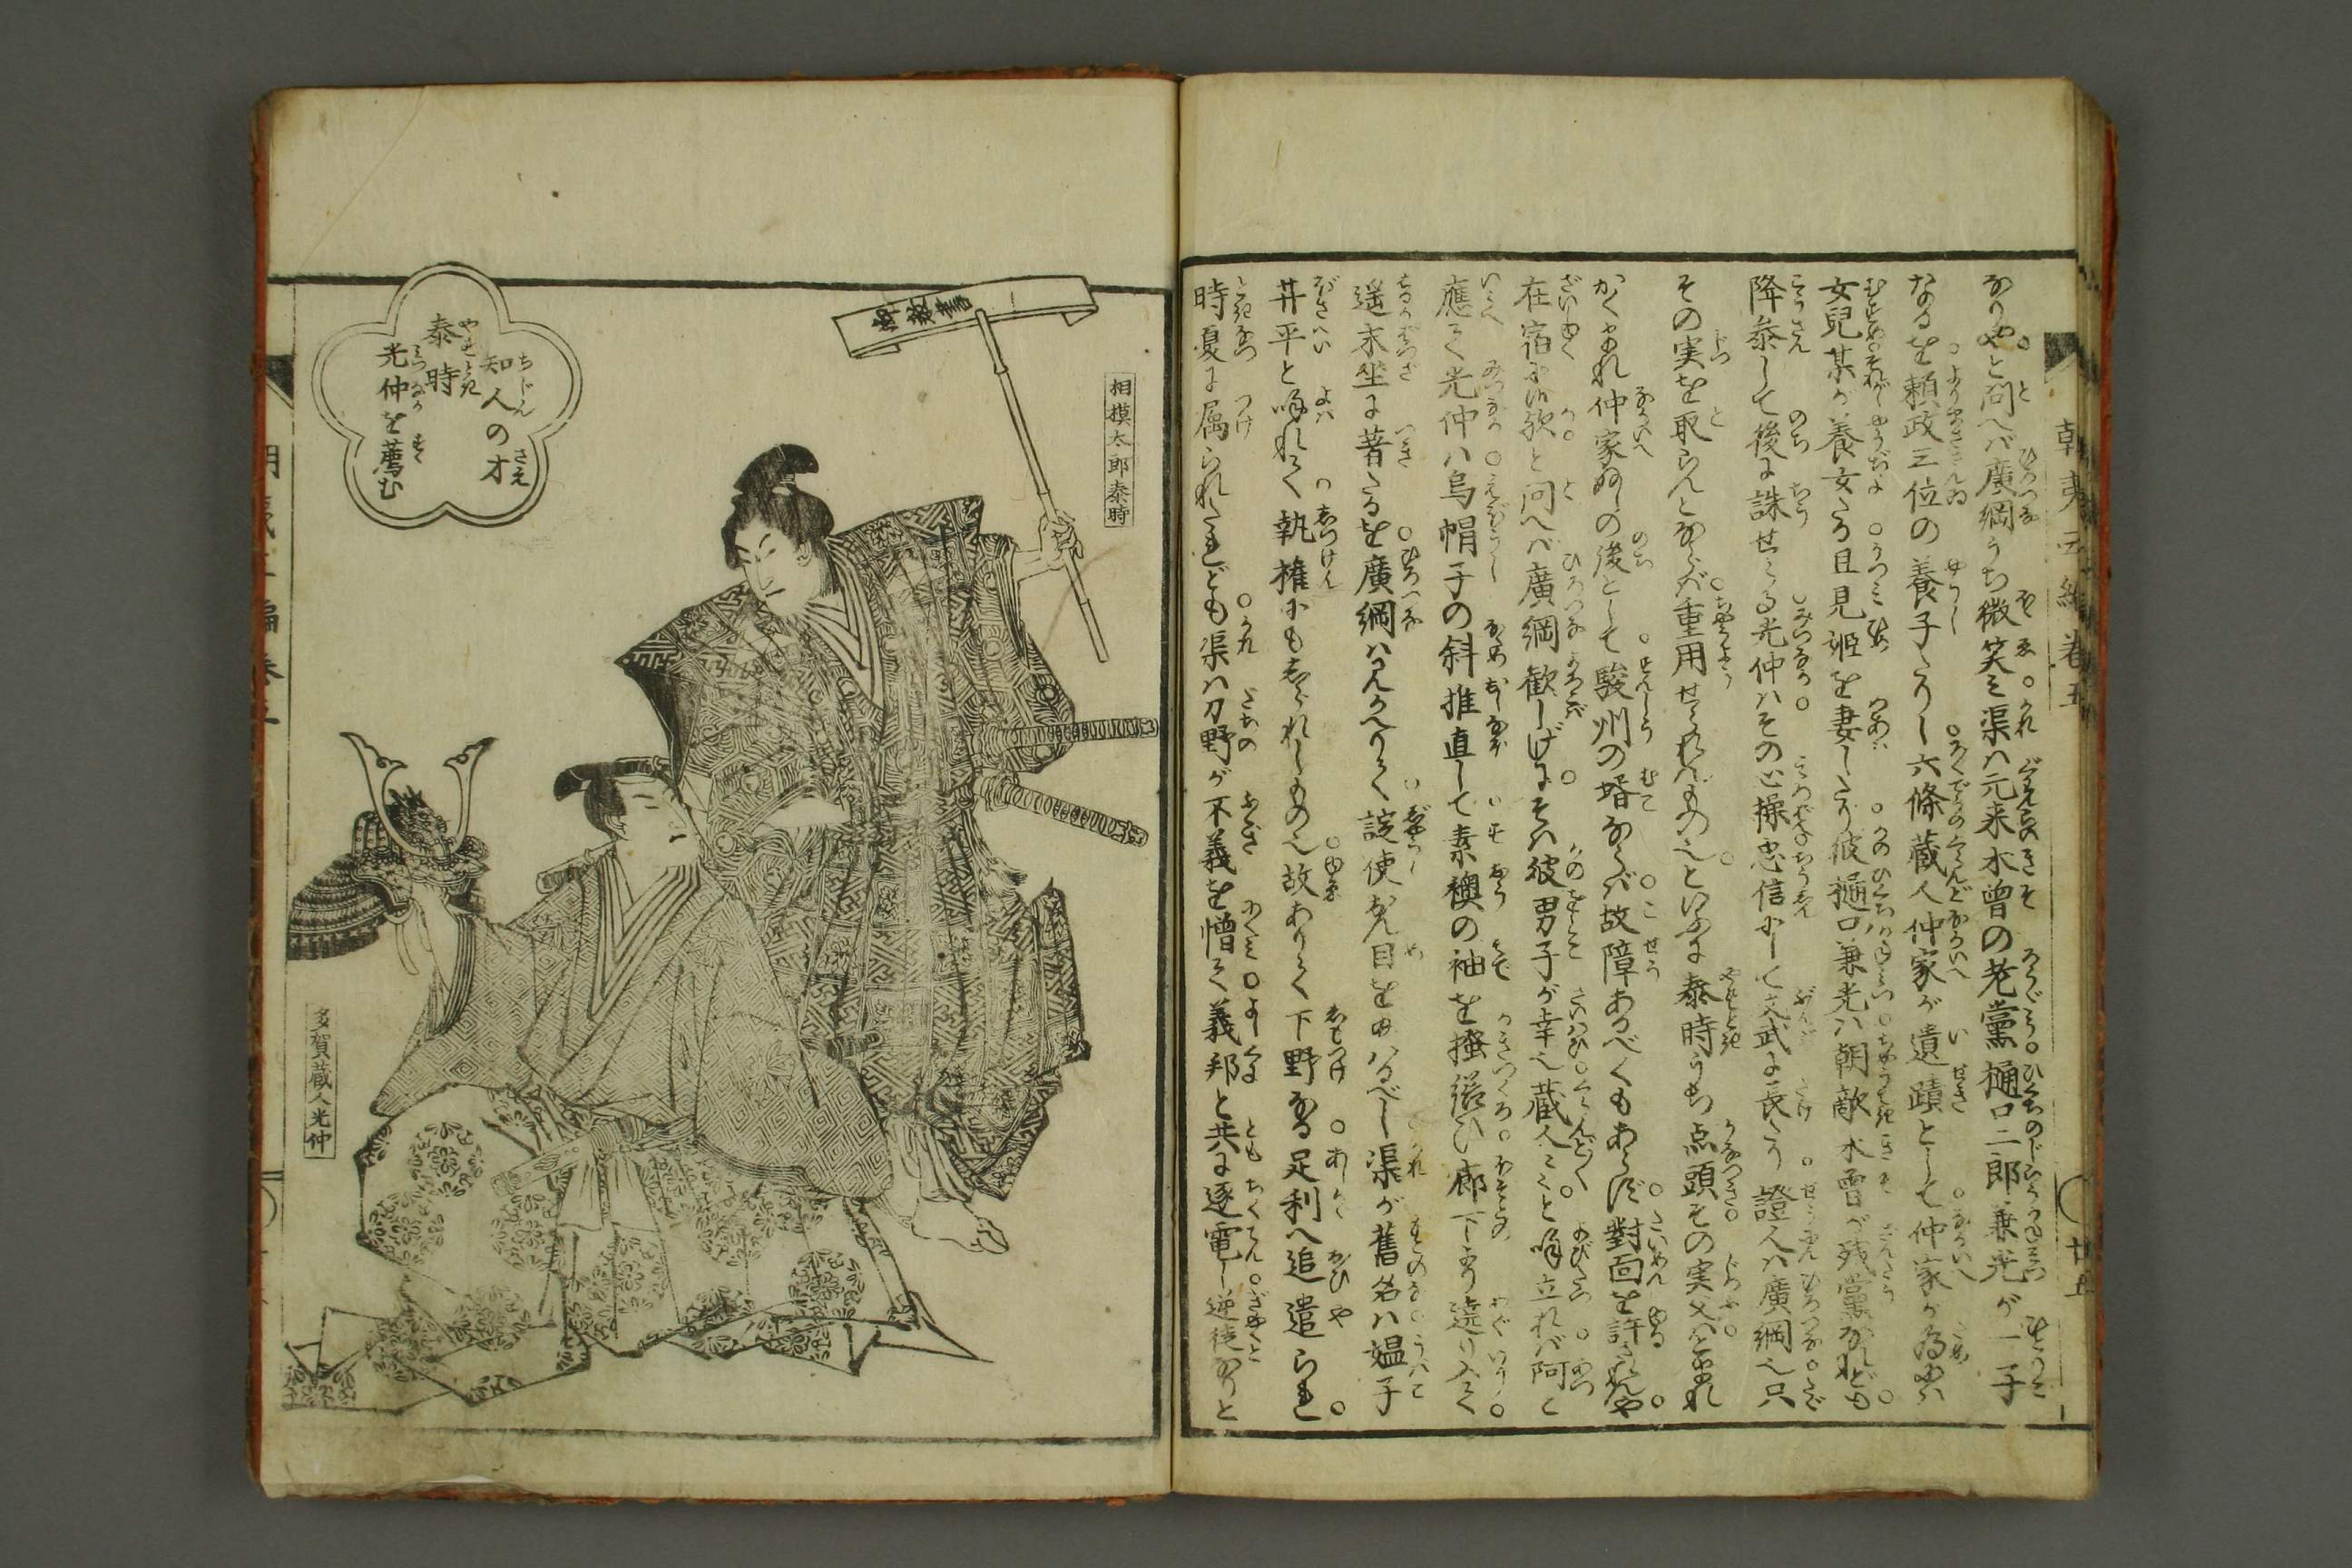 朝夷
なりやと問へバ廣綱うち微笑ミ渠ハ元来木曽の老黨樋口二郎兼光が一子
なるを頼政三位の養子たりし六條蔵人仲家が遺蹟として仲家が為にハ
女兒某が養女たる且見姫を妻したり彼樋口兼光ハ朝敵木曽が残黨なれども
降参して後に誅せらる光仲ハその心操忠信にして文武に長たり證人ハ廣綱也只
その実を取らんとならバ重用せらればものといふに泰時うち点頭その実父ハとまれ
かくまれ仲家ぬしの後として駿州の壻ならバ故障あるべくもあらず對面を許されんや
在宿に候歟と問へバ廣綱歡しげにそハ彼男子が幸也蔵人ミミと喚立れバ阿と
應て光仲ハ烏帽子の斜推直して素襖の袖を掻繕ひ廊下より遶り入て
遥末坐に着たるを廣綱ハ見かへりて誼使おん目を給はるべし渠が舊名ハ媼子
井平と喚れて執権にもしられしもの也故ありて下野なる足利へ追遣られし
時夏に属られたれども渠ハ刀野が不義を憎て義邦と共に逐電し逆徒ありと
相模太郎泰時
御教書
知人の才
泰時
光仲を薦む
多賀蔵人光仲